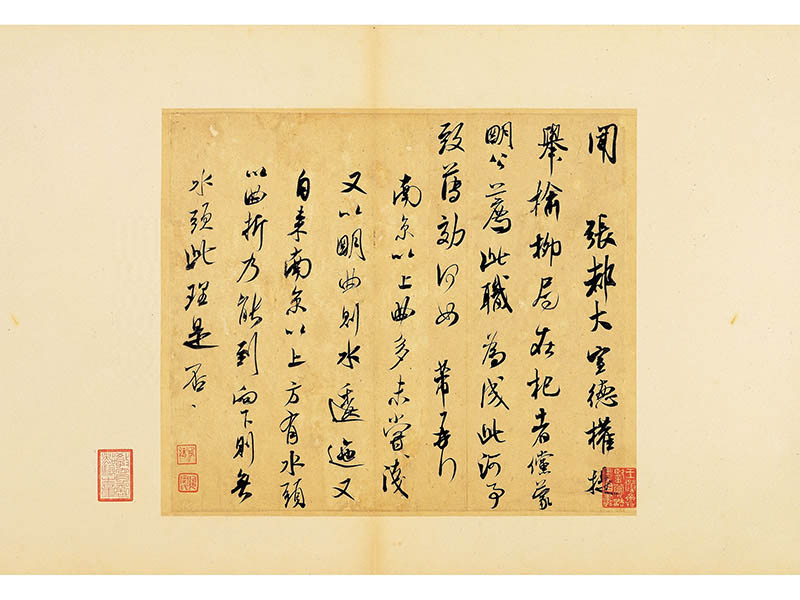 聞 張都大宣德權提
舉榆柳局在杞者儻蒙
明公薦此職為成此河事
致薄効何如 芾再行
南京以上曲多未嘗淺
又以明曲則水逶迤又
自來南京以上方有水頭
以曲折乃能到向下則無
水頭此理是否